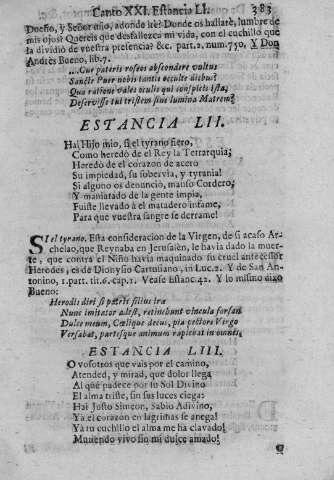 Canto XXI. Estancia LI. 383
Dueño, y Señor mio, adonde iré? Donde os hallaré, lumbre de
mis ojos? Quereis que desfallezca mi vida, con el cuchillo que
la dividiò de vuestra presencia? &c. part. 2. num. 750. Y Don
Andrès Bueno, lib. 7.
...Cur pateris roseos abscondere vultus
Sancte Puer nobis tantis occulte diebus?
Qua ratione vales oculis qui conspicis ista,
Deservisse tui tristem sine lumina Matrem?
ESTANCIA LII.
Hai Hijo mio, si el tyrano fiero,
Como heredò de el Rey la Tetrarquia;
Heredò de el corazon de acero
Su impiedad, su sobervia, y tyrania!
Si alguno os denunciò, manso Cordero;
Y maniatado de la gente impia,
Fuiste llevado à el matadero infame,
Para que vuestra sangre se derrame!
Si el tyrano. Esta consideracion de la Virgen, de si acaso Ar-
chelao, que Reynaba en Jerusalèn, le havia dado la muer-
te, que contra el Niño havia maquinado su cruel antecessor
Herodes, es de Dionysio Cartusano, in Luc. 2. Y de San An-
tonino, 1. part. tit. 6. cap. 1. Vease Estanc. 42. Y lo mismo dixo
Bueno:
Herodis diri si patris filius ira
Nunc imitator adest, retinebunt vincula forsan
Dulce meum, Cœlique decus, pia pectore Virgo
Versabat, partesque animum rapiebat in omnes
ESTANCIA LIII.
O vosotros que vais por el camino,
Atended, y mirad, que dolor llega
Al que padece por su Sol Divino
El alma triste, sin sus luces ciega:
Hai Justo Simeon, Sabio Adivino,
Ya el corazon en lagrimas se anega!
Ya tu cuchillo el alma me ha clavado!
Muriendo vivo sin mi dulce amado!